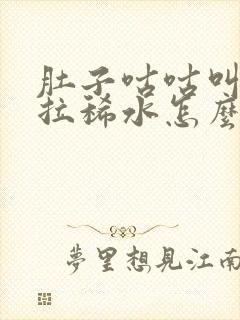 肚子咕咕叫
拉稀水怎麼
夢里想見江南